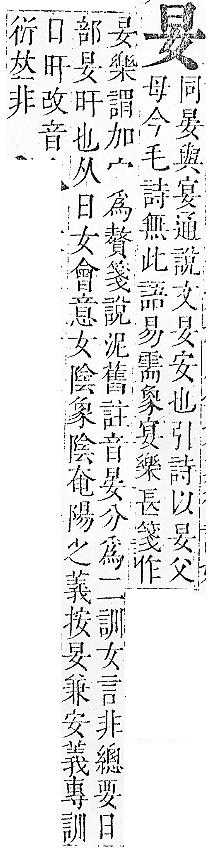 妟
同晏與宴通說文妟安也引詩以妟父
母今毛詩無此語易需象宴樂長箋作
妟樂謂加宀爲贅箋說泥舊註音晏分爲二訓女言非總要日
部妟旰也从日女會意女陰象陰奄陽之義按妟兼安義專訓
日旰改音
衍𠀤非